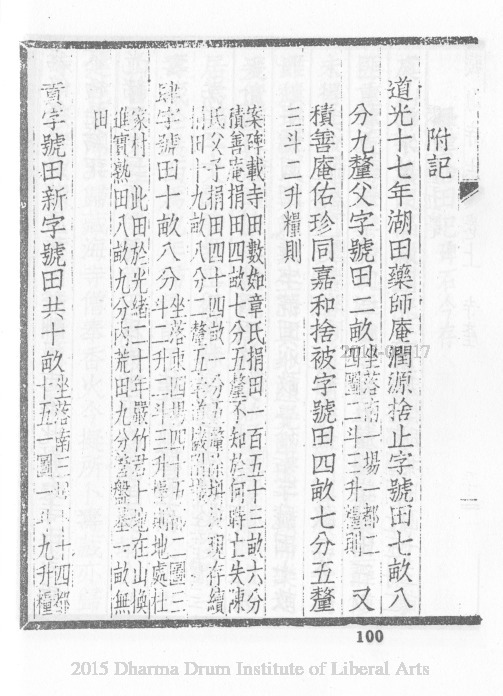 附記
道光十七年湖田藥師庵潤源捨止字號田七畝八
分九釐父字號田二畝坐落南一場一都二
四圖二斗三升糧則 又
積善庵佑珍同嘉和捨被字號田四畝七分五釐
三斗二升糧則
案碑載寺田數如章氏捐田一百五十三畝六分
積善庵捐田四畝七分五釐不知於何時亡失陳
氏父子捐田四十四畝一分五釐
現存續
捐田十九畝八分二釐五
肆字號田十畝八分坐落東四場四十五都二圖三
斗二升二 升糧則地處杜
家村 此田於光緒二十年嚴竹君十地在山換
進實熟田八畝九分內荒田九分 盤基一畝無
田
貢字號田新字號田共十畝坐落南三 十四都
十五一圖一斗九升糧
100
2015 Dharma Drum Institute of Liberal Arts